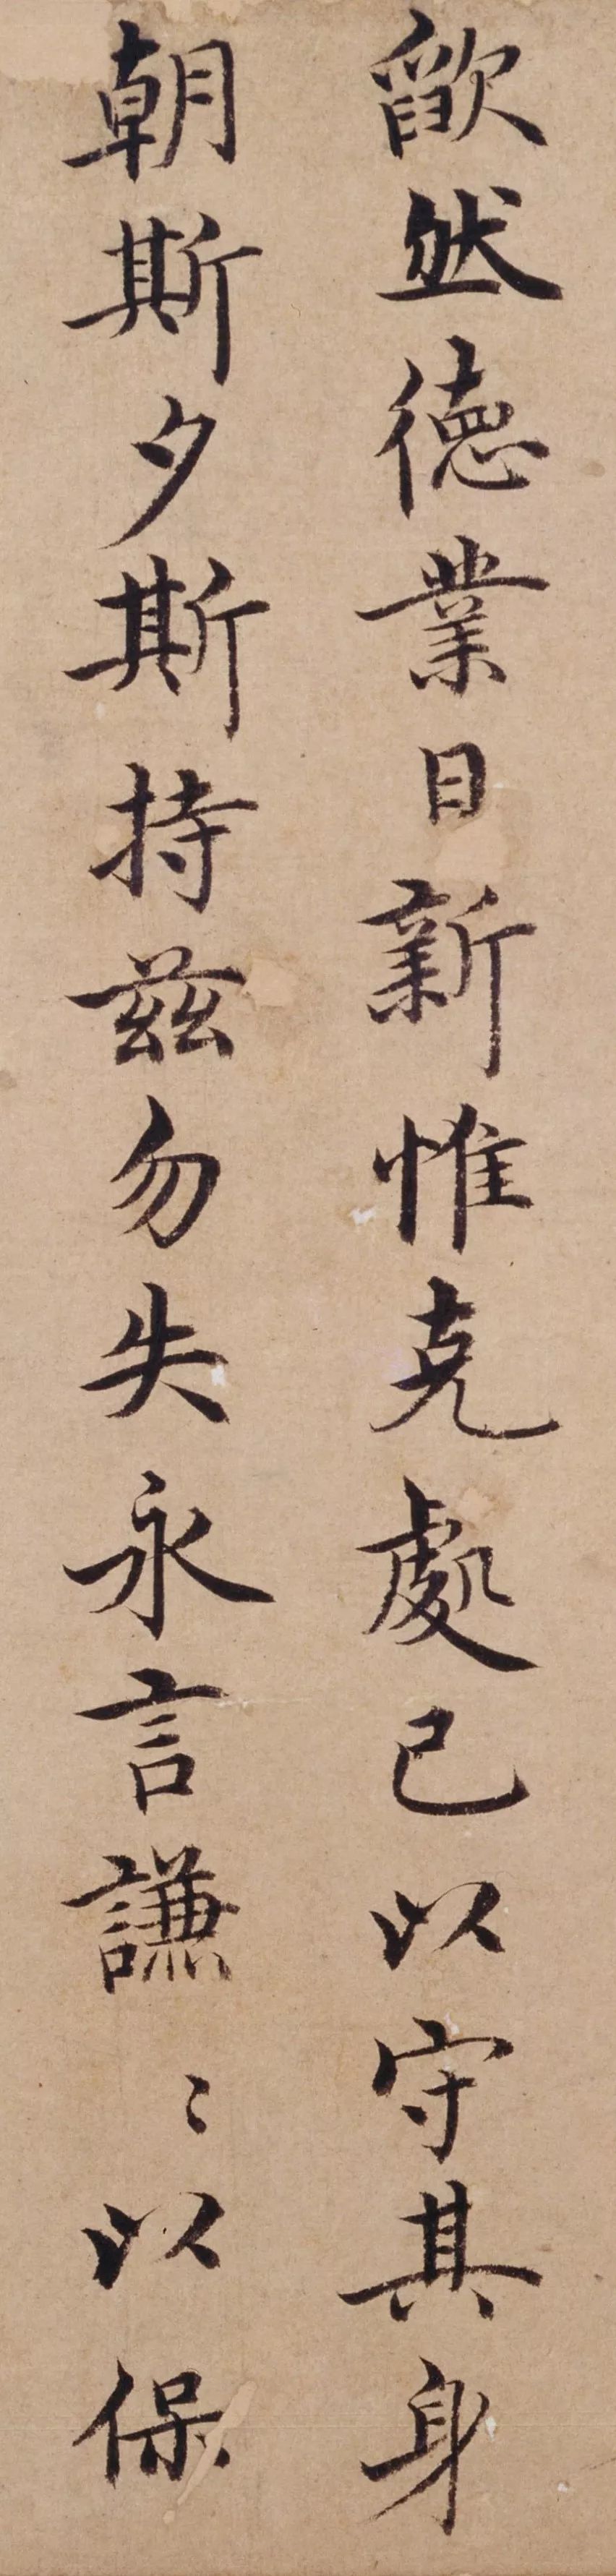 欿然德業日新惟克處己以守其身
朝斯夕斯持茲勿失永言謙〻以保